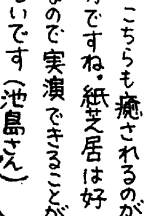 こちらも癒されるのが
ですね。紙芝居は好
なので実演できることが
いです（池島さん）